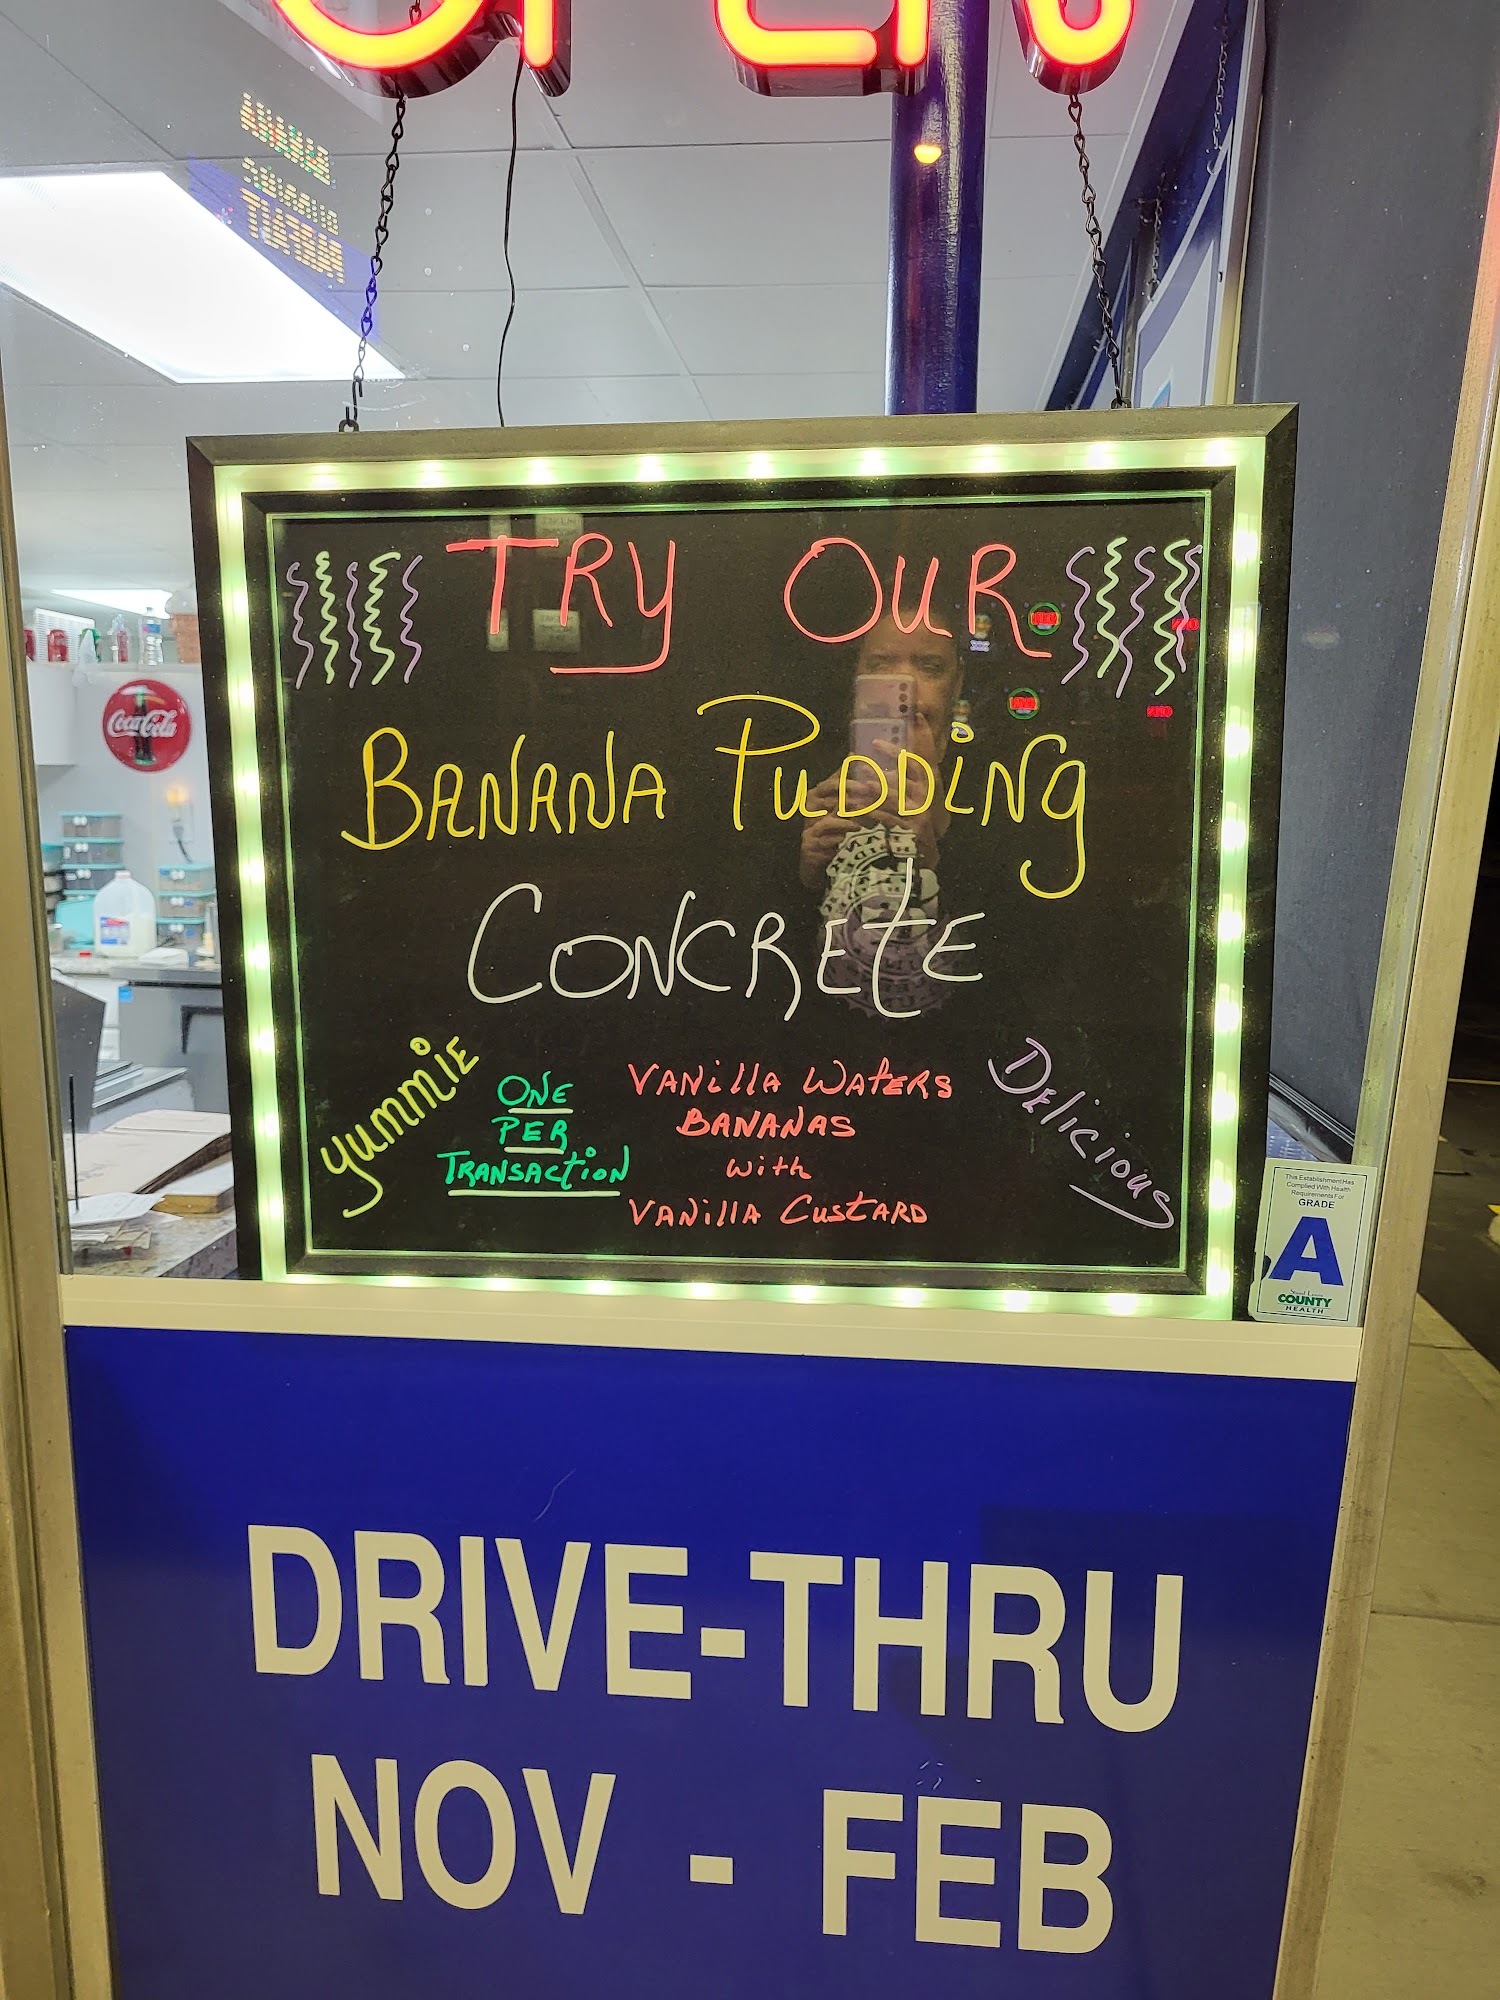 OPEN
TRY OUR
BANANA PUDDING
CONCRETE
YUMMIE
ONE
PER
TRANSACTION
VANILLA WATERS
BANANAS
with
VANILLA CUSTARD
DELICIOUS
Coca-Cola
This Establishment Has
Complied With Health
Requirements For
GRADE
A
COUNTY
HEALTH
DRIVE-THRU
NOV - FEB